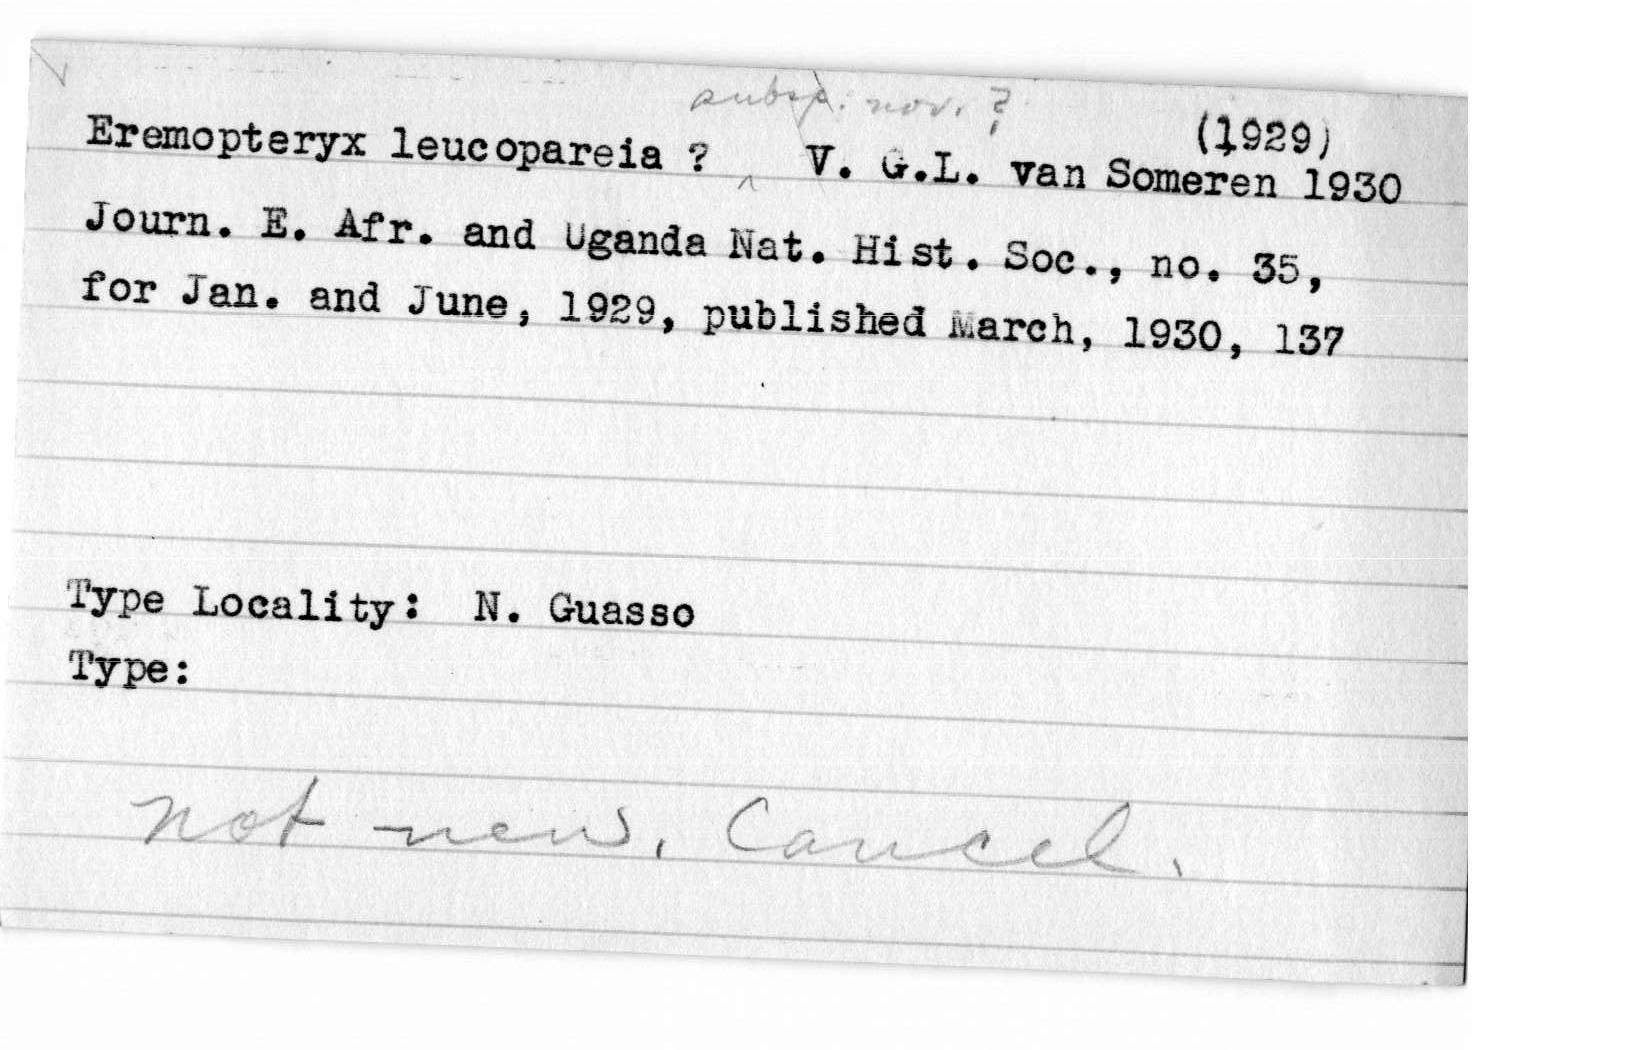 subsp. nov. ?
(1929)
Eremopteryx leucopareia ? ^ V. G.L. van Someren 1930
Journ. E. Afr. and Uganda Nat. Hist. Soc., no. 35,
for Jan. and June, 1929, published March, 1930, 137
Type Locality: N. Guasso
Type:
not new. Cancel.